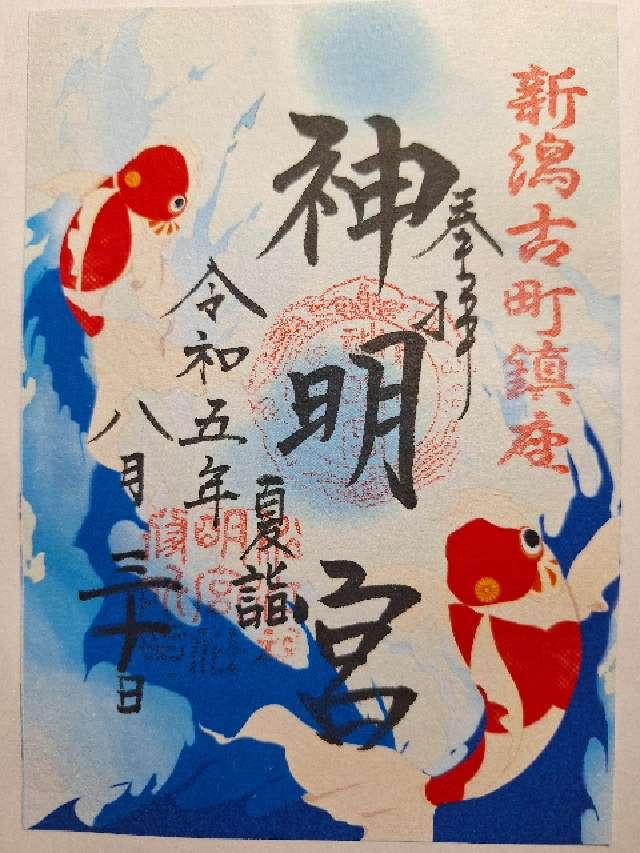 新潟古町鎮座
奉拝
神明宮
夏詣
令和五年
八月三十日